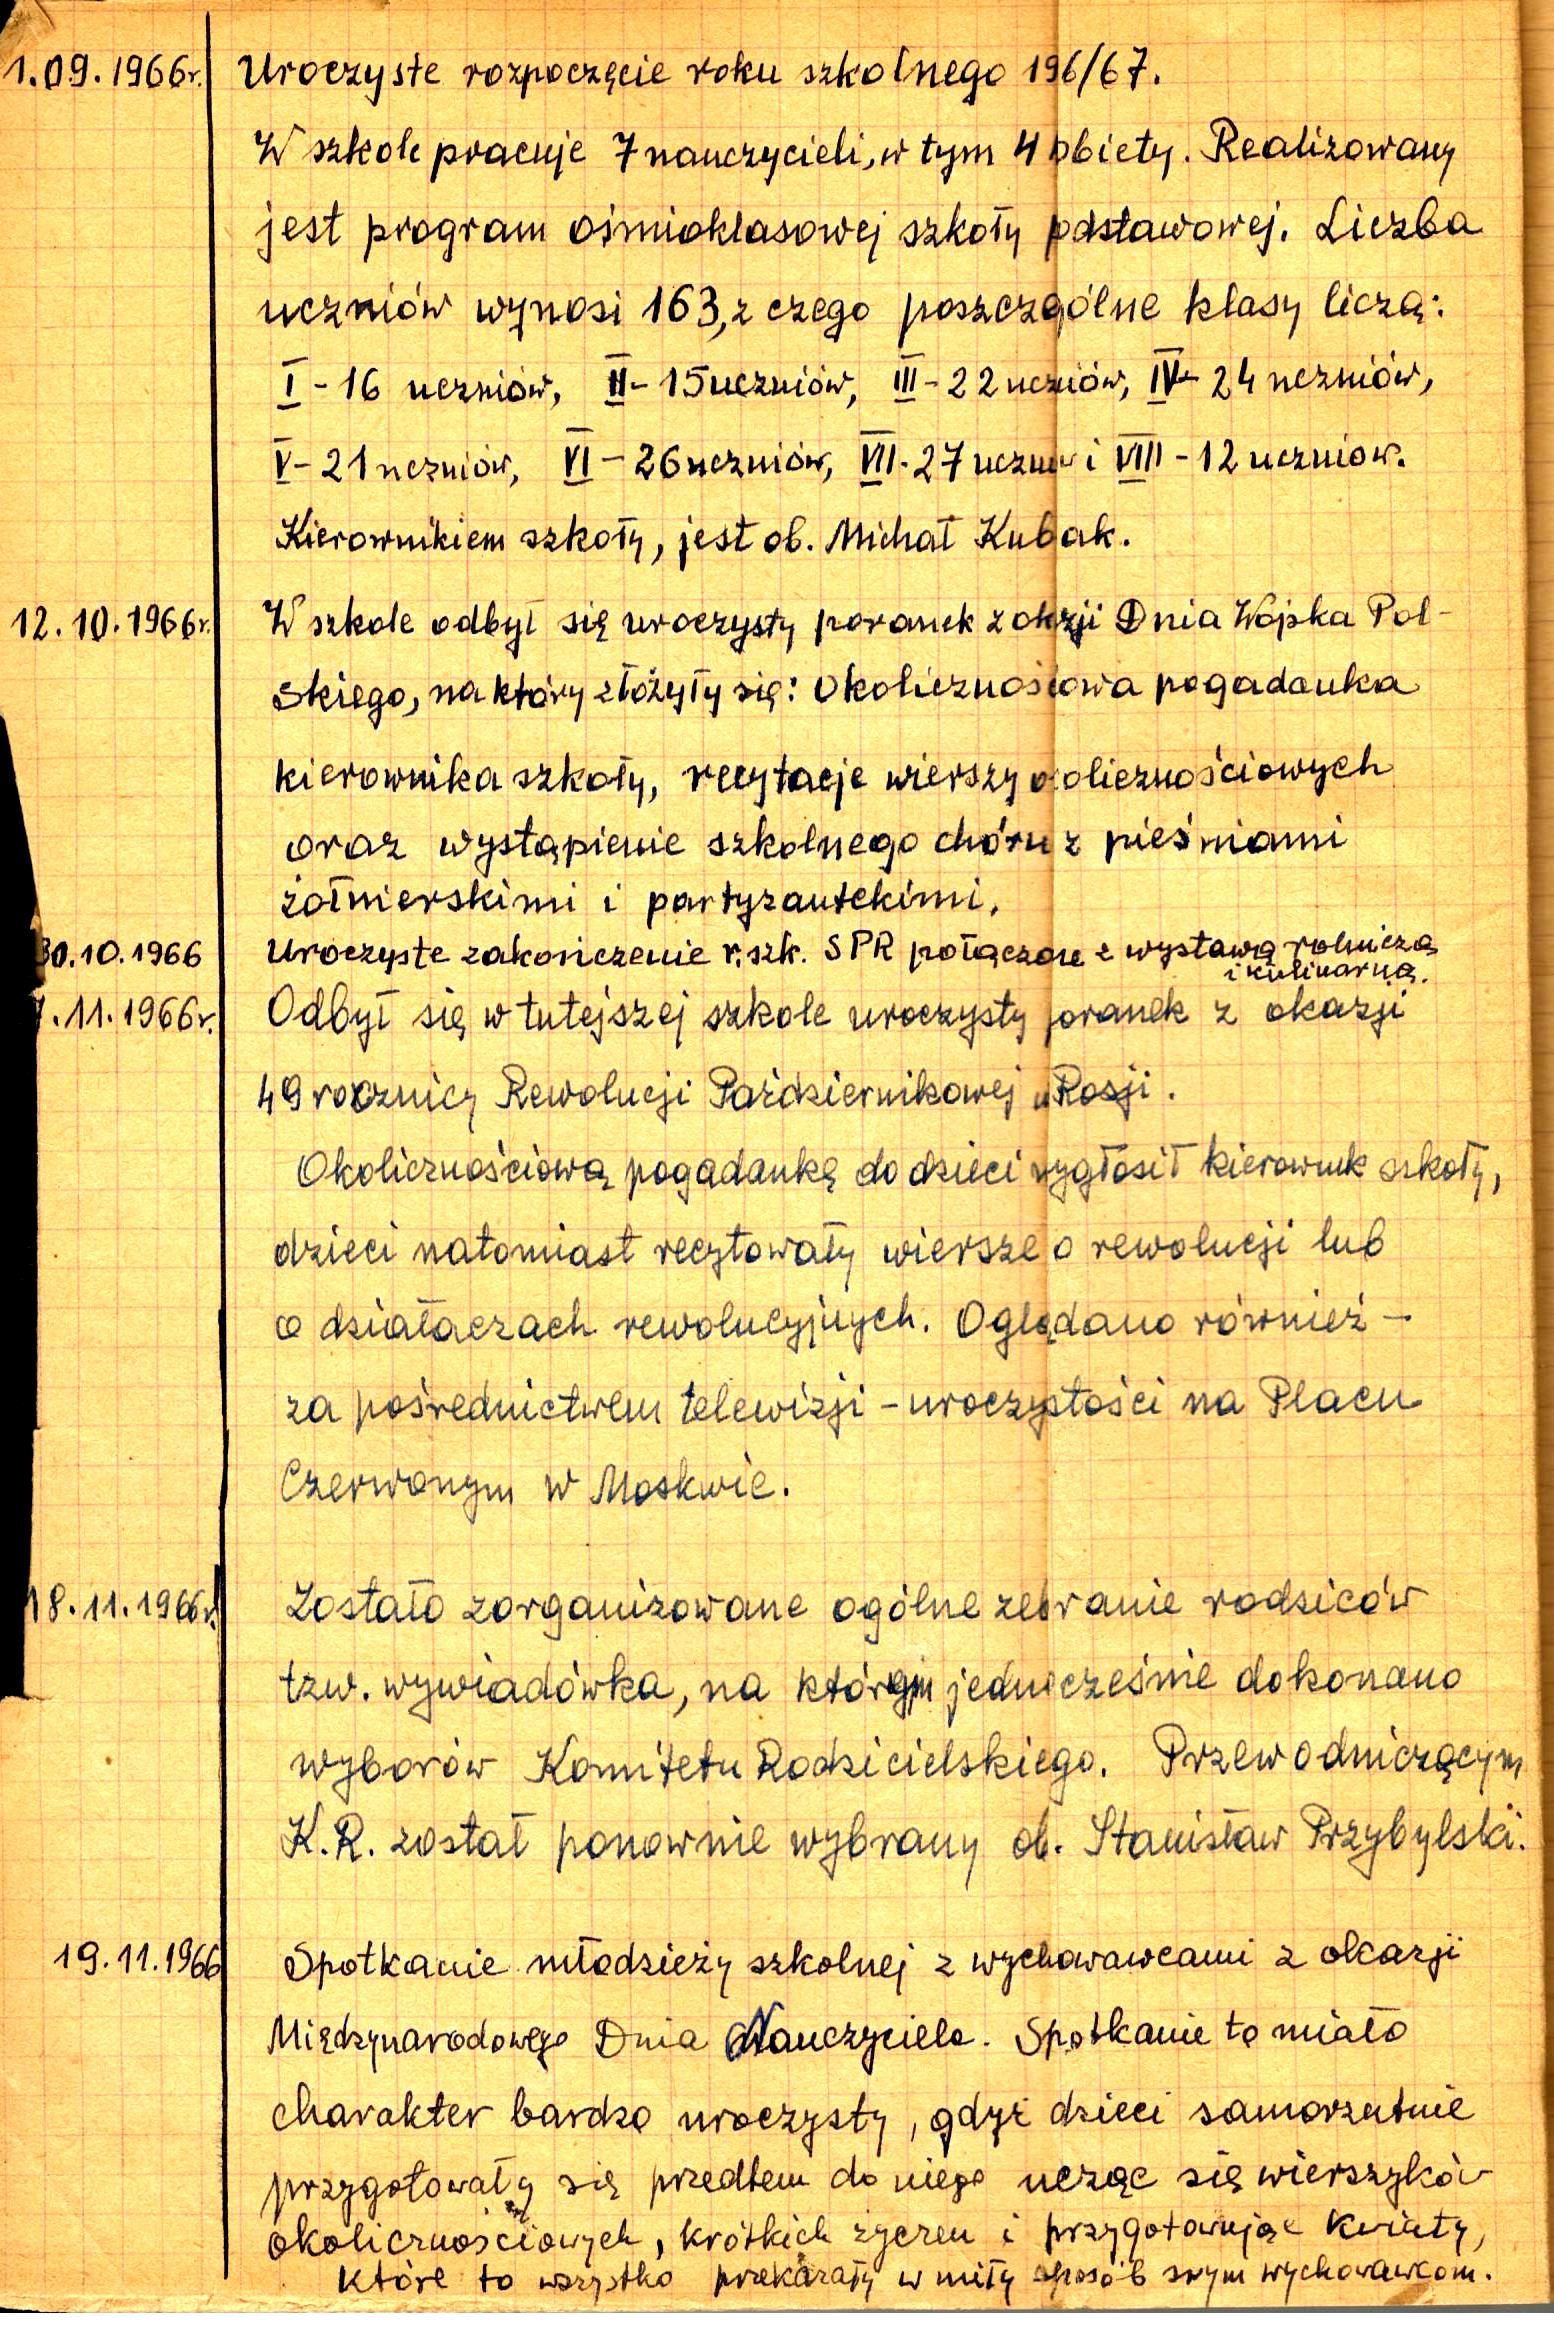 1.09.1966r. Uroczyste rozpoczęcie roku szkolnego 196/67.
W szkole pracuje 7 nauczycieli, w tym 4 obiety. Realizowany
jest program ośmioklasowej szkoły pdstawowej. Liczba
uczniów wynosi 163, z czego poszczególne klasy liczą:
I - 16 uczniów, II - 15 uczniów, III - 22 uczniów, IV - 24 uczniów,
V - 21 uczniów, VI - 26 uczniów, VII - 27 uczniów i VIII - 12 uczniow.
Kierownikiem szkoły, jest ob. Michał Kubak.
12.10.1966r. W szkole odbył się uroczysty poranek z okzji Dnia Wojska Pol-
skiego, na który złożyły się: okolicznościowa pogadanka
kierownika szkoły, recytacje wierszy okolicznościowych
oraz wystąpienie szkolnego chóru z pieśniami
żołnierskimi i partyzanckimi.
30.10.1966 Uroczyste zakończenie r. szk. SPR połączone z wystawą rolniczą
i kulinarną.
7.11.1966r. Odbył się w tutejszej szkole uroczysty poranek z okazji
49 rocznicy Rewolucji Październikowej w Rosji.
Okolicznościową pogadankę do dzieci wygłosił kierownik szkoły,
dzieci natomiast recytowały wiersze o rewolucji lub
o działaczach rewolucyjnych. Oglądano również -
za pośrednictwem telewizji - uroczystości na Placu
Czerwonym w Moskwie.
18.11.1966r. Zostało zorganizowane ogólne zebranie rodziców
tzw. wywiadówka, na którym jednocześnie dokonano
wyborów Komitetu Rodzicielskiego. Przewodniczącym
K.R. został ponownie wybrany ob. Stanisław Przybylski.
19.11.1966 Spotkanie młodzieży szkolnej z wychowawcami z okazji
Międzynarodowego Dnia Nauczyciela. Spotkanie to miało
charakter bardzo uroczysty, gdyż dzieci samorzutnie
przygotowały się przedtem do niego ucząc się wierszyków
okolicznościowych, krótkich życzeń i przygotowując kwiaty,
które to wszystko przekazały w miły sposób swym wychowawcom.